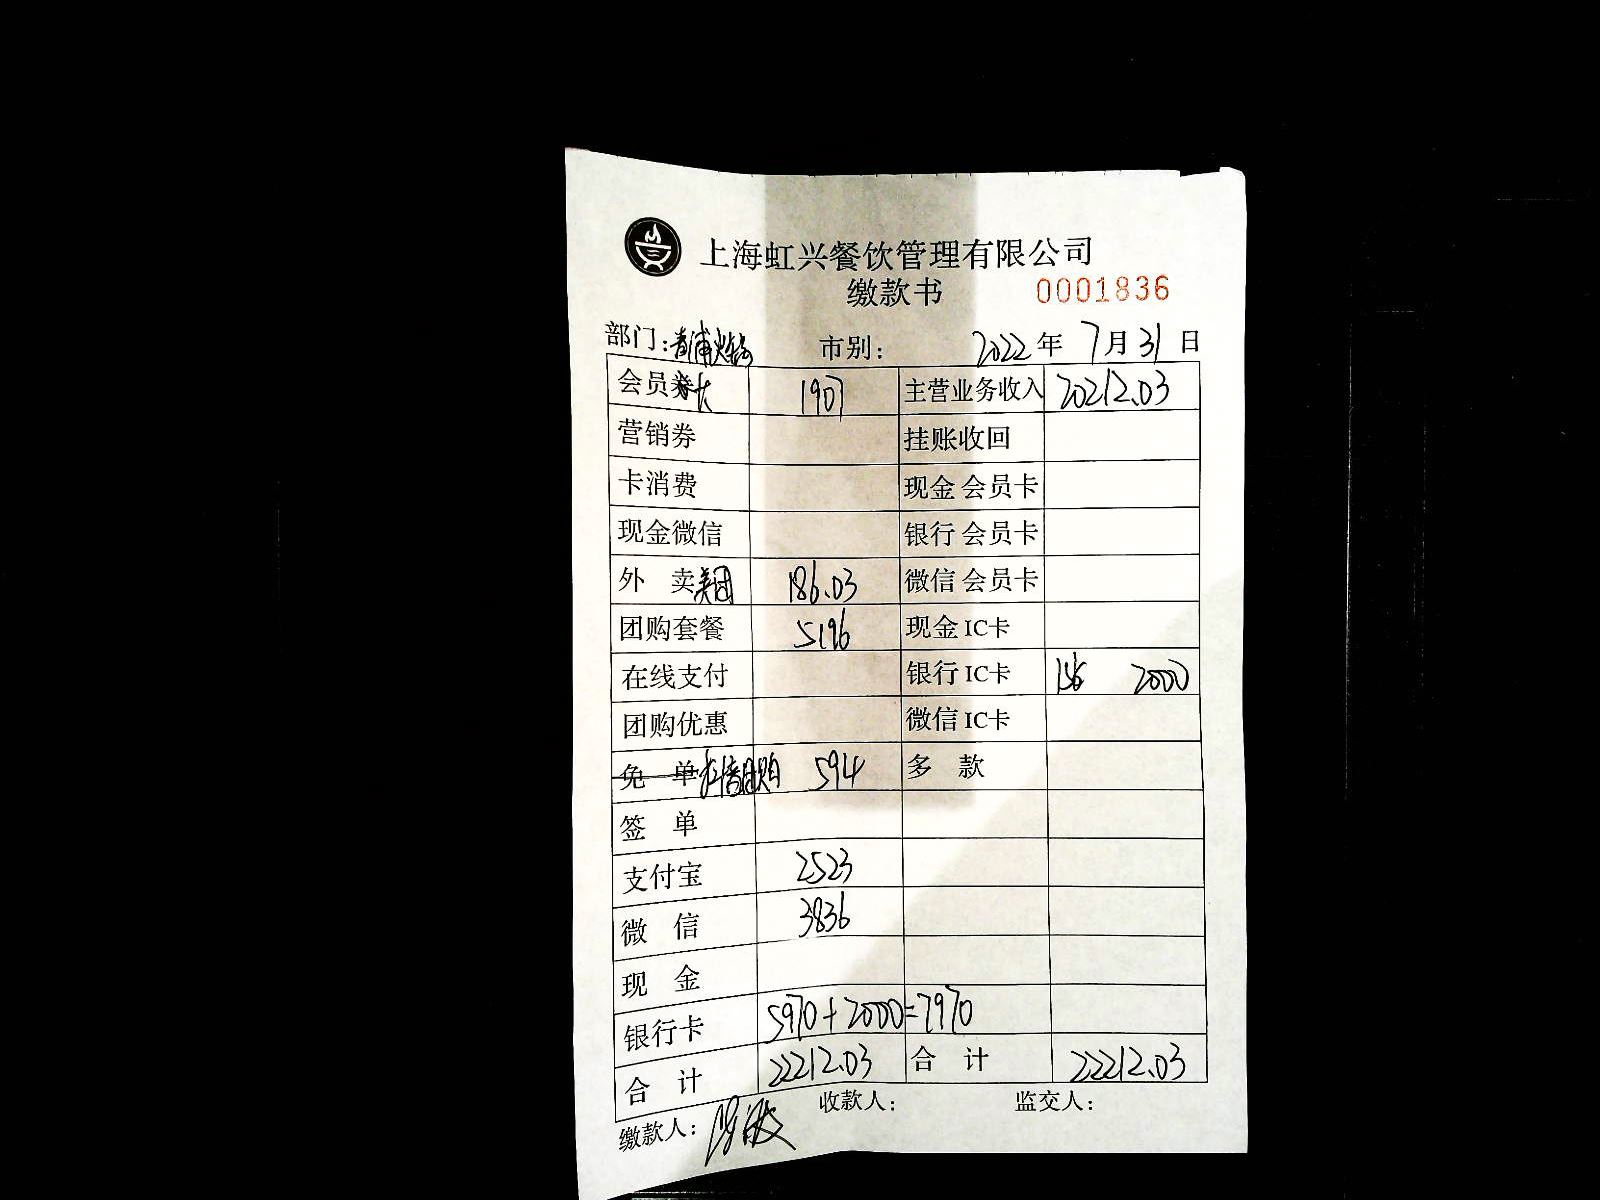 上海虹兴餐饮管理有限公司
缴款书 0001836
部门:青浦火锅 市别: 2022年7月31日
会员 1907 主营业务收入 20212.03
营销券 挂账收回
卡消费 现金会员卡
现金微信 银行会员卡
外卖美团 186.03 微信会员卡
团购套餐 5196 现金IC卡
在线支付 银行IC卡 156 2000
团购优惠 微信IC卡
免单抖音团购 594 多款
签单
支付宝 2523
微信 3836
现金
银行卡 5970+2000=7970
合计 22212.03 合计 22212.03
缴款人: 收款人: 监交人: